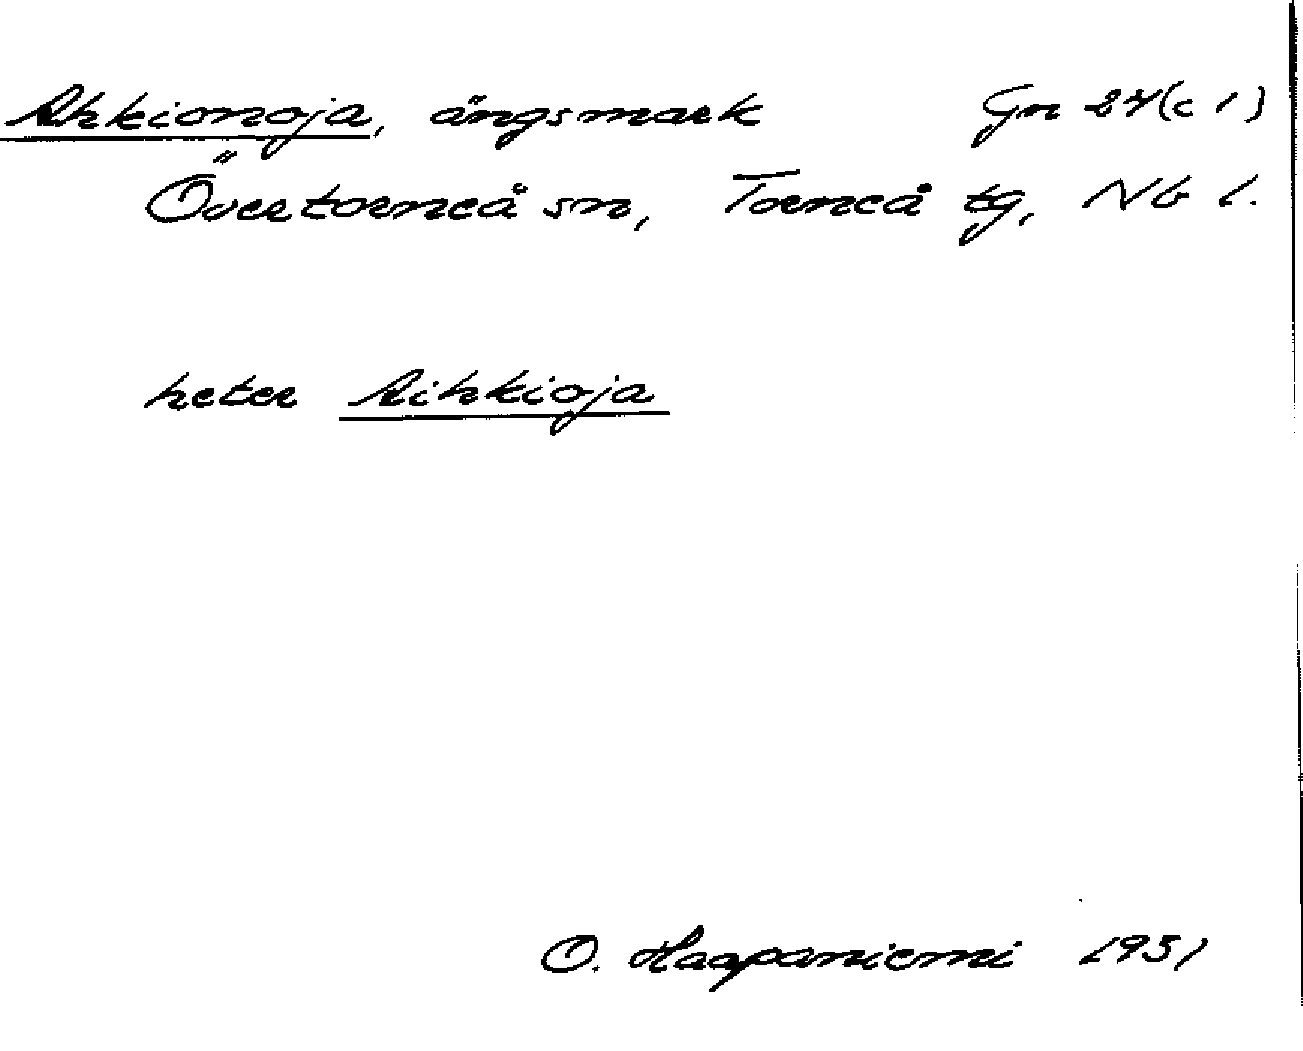 Ahkionoja, ängsmark Gn 24(c 1)
Övertorneå sn, Torneå tg, Nb l.
heter Aihkioja
O. Haapaniemi 1951